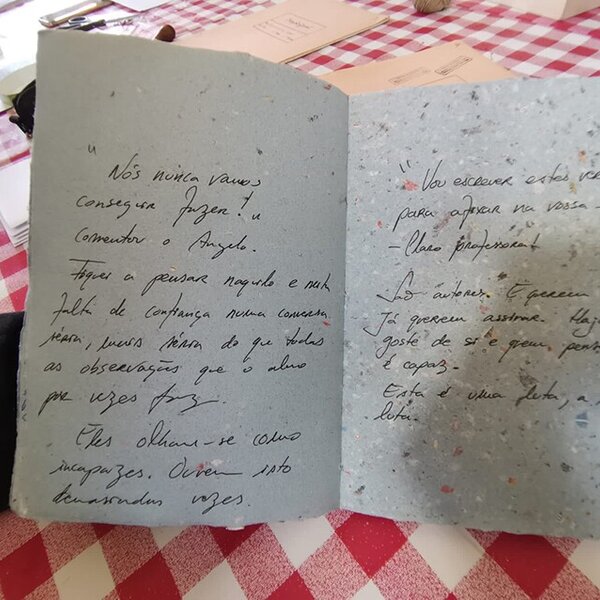 "
Nós nunca vamos
conseguir fazer!"
comentou o Angelo.
Fiquei a pensar naquilo e nesta
falta de confiança numa conversa
séria, mais séria do que todas
as observações que o aluno
por vezes faz.
Eles olham-se como
incapazes. Ouvem isto
demasiadas vezes.
"Vou escrever estes
para afixar na vossa
- Claro professora!
São autores. E querem
Já querem assinar.
goste de si e quem
é capaz.
Esta é uma luta, a
luta.